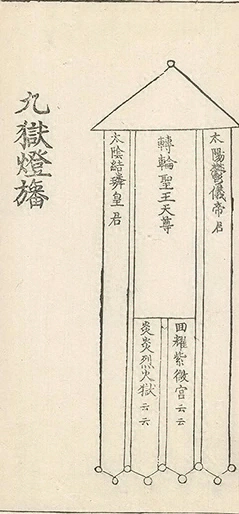 太陽鬱儀帝君
轉輪聖王天尊
囬耀紫微宮云云
炎炎烈火獄云云
太陰結璘皇君
九獄燈旛